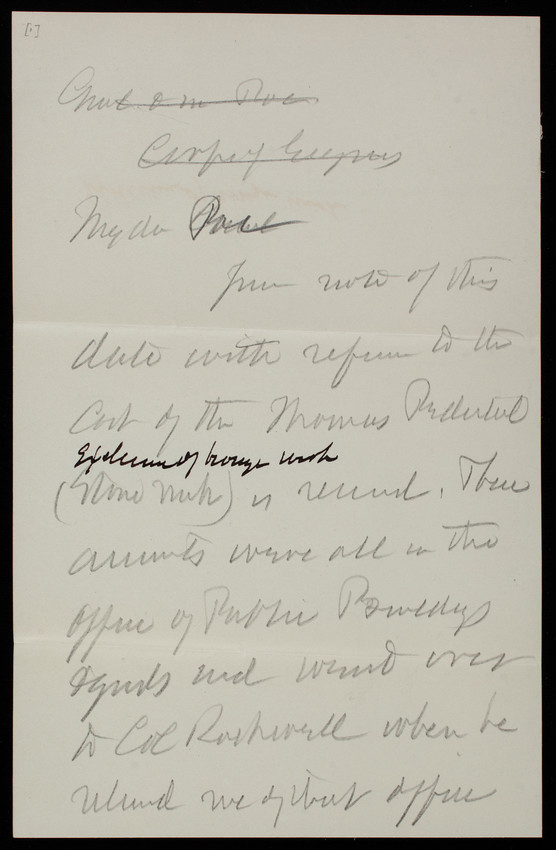 [1]
My dr
Your note of this
date with reference to the
cost of the Thomas Pedestal
Exclusive of bronze work
(Stone work) is received. These
accounts were all in the
office of Public Buildings
Grounds and went over
to Col Rockwell when he
relieved me of that office